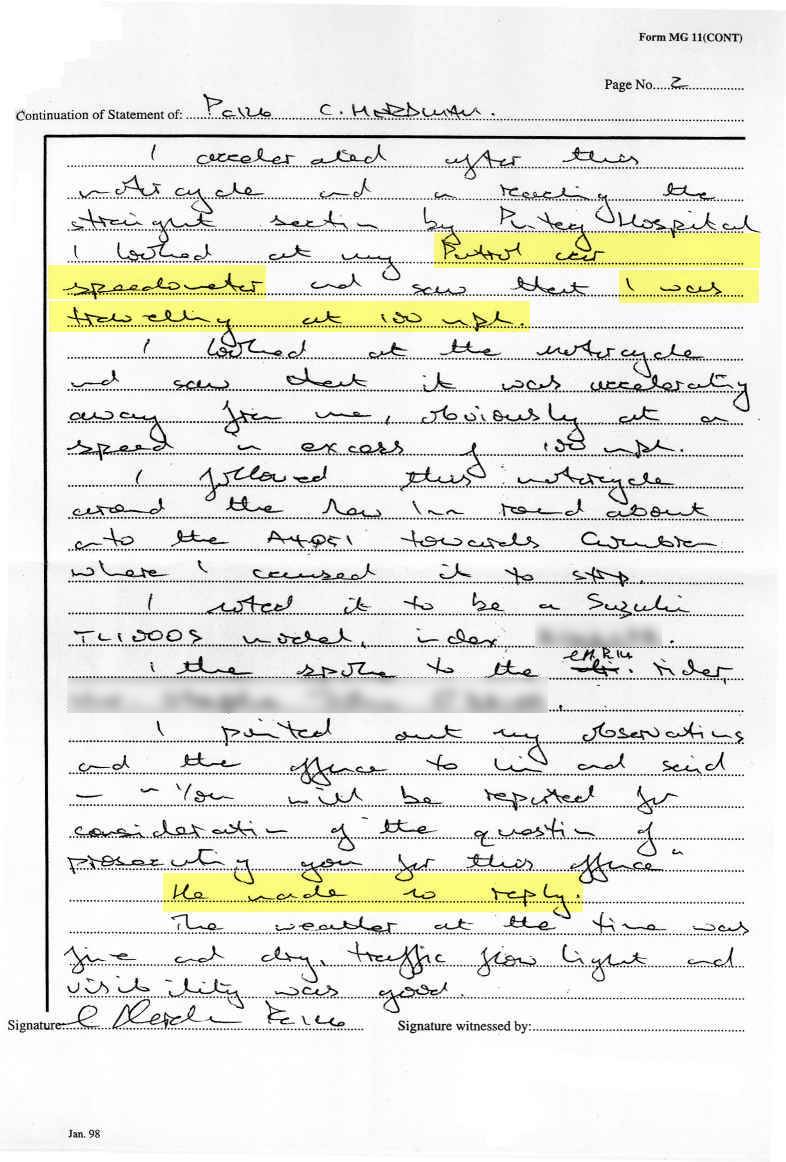 Form MG 11(CONT)
Page No. 2
Continuation of Statement of: C. HARDMAN.
I accelerated after this
motorcycle and on reaching the
straight section by Hospital
I looked at my Patrol car
speedometer and saw that I was
travelling at 100 mph.
I looked at the motorcycle
and saw that it was accelerating
away from me, obviously at a
speed in excess of 100 mph.
I followed this motorcycle
around the New Inn round about
onto the A4051 towards Cwmbran
where I caused it to stop.
I noted it to be a Suzuki
TL1000S model, index .
I the spoke to the rider,
I pointed out my observations
and the offence to him and said
– "You will be reported for
consideration of the question of
prosecuting you for this offence"
He made no reply.
The weather at the time was
fine and dry, traffic flow light and
visibility was good.
Signature: C Hardman Signature witnessed by:
Jan. 98